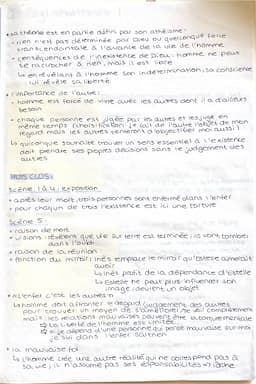 • sa théorie est en partie défini par son athéisme:
• rien n'est pas déterminée par Dieu ou quelconque force
transcendantale à l'avance de la vie de l'homme
• conséquences de l'inexistence de Dieu: homme ne peut
se raccrocher à rien, mais il est libre
↳ en révélant à l'homme son indétermination, sa conscience
lui révèle sa liberté
• l'importance de l'autre:
• homme est forcé de vivre avec les autres dont il a d'ailleurs
besoin
• chaque personne est jugée par les autres et les juge en
même temps (chosification: je fait de l'autre l'objet de mon
regard mais les autres peuvent d'objectifier moi aussi)
↳ quiconque souhaite trouver un sens essentiel à l'existence
doit prendre ses propres décisions sans le jugement des
autres
HUIS CLOS:
Scène 1 à 4: exposition
• après leur mort, trois personnes sont enfermé dans l'enfer
• pour chacun de trois l'existence est ici une torture
Scène 5:
• raison de mort
• visions: révèlent que vie sur terre est terminée, ils vont tomber
dans l'oubli
• raison de la réunion
• fonction du miroir: Inès remplace le miroir qu'Estelle aimerait
avoir
↳ Inès profit de la dépendance d'Estelle
↳ Estelle ne peut plus influencer son
image, devient un objet
• «L'enfer c'est les autres»
↳ homme doit affronter le regard/jugement des autres
pour trouver un moyen de s'améliorer/se voir complètement
mais: les relations mauvaises peuvent être la torture mentale
↳ la liberté de l'homme est limitée
↳ si je dépend d'une personne qui pense mauvaise sur moi
je suis dans l'enfer sartrien
• la mauvaise foi
↳ l'homme crée une autre réalité qui ne correspond pas à
sa vie; il n'assume pas ses responsabilités → lâche